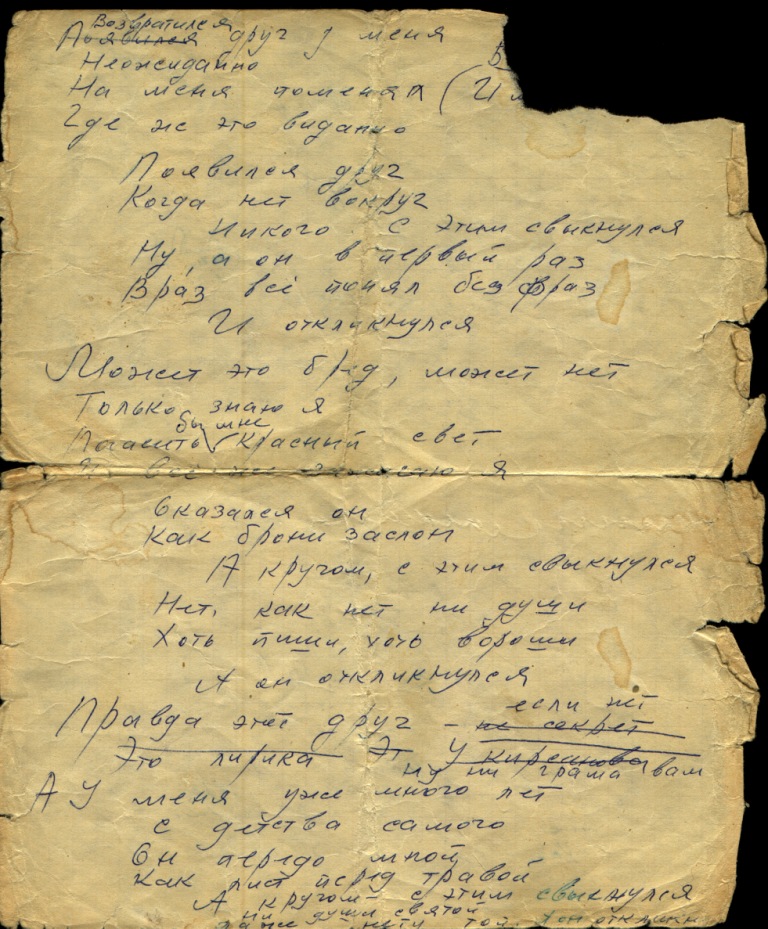 Возвратился
Появился друг у меня
Неожиданно
На меня поменял (И
Где же это видано
Появился друг
Когда нет вокруг
Никого с этим свыкнулся
Ну, а он в первый раз
Враз всё понял без фраз
И откликнулся
Может это бред, может нет
Только знаю я
бы мне
Погасить красный свет
всё же я
Оказался он
Как брони заслон
А кругом, с этим свыкнулся
Нет, как нет ни души
Хоть пиши, хоть вороши
А он откликнулся
если нет
Правда этот друг – не секрет
Это лирика Эт У
ну ни грама вам
А У меня уже много лет
с детства самого
Он передо мной
Как лист перед травой
А кругом – с этим свыкнулся
ни души святой
даже нету той, он откликн